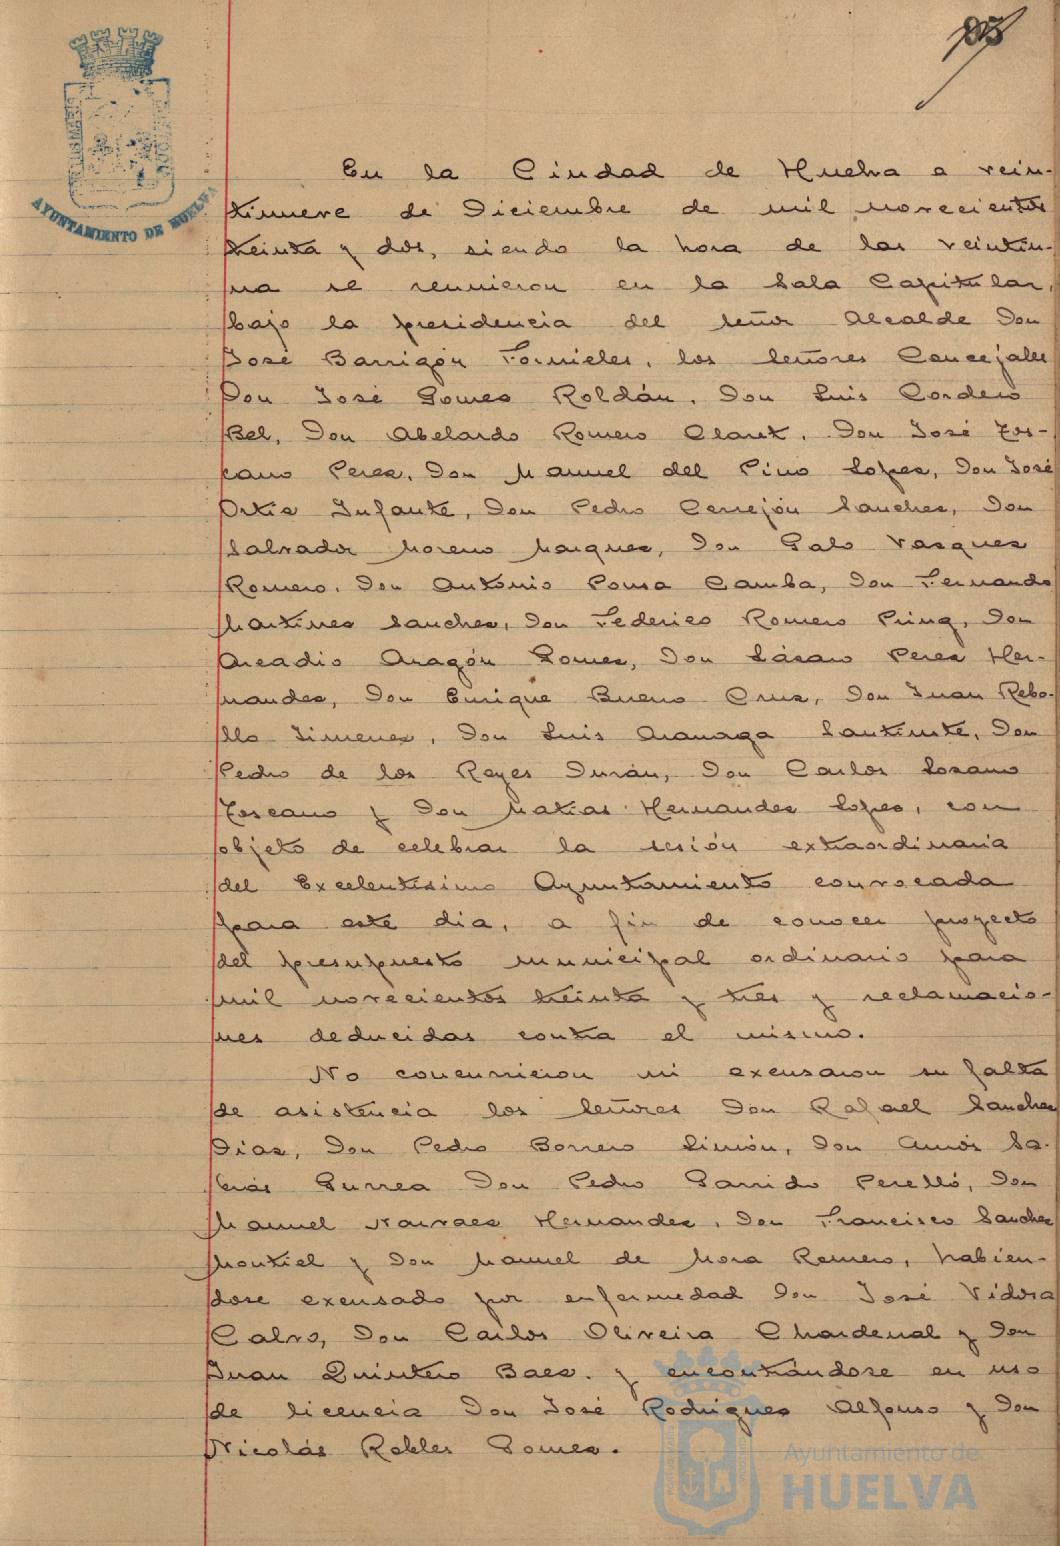 AYUNTAMIENTO DE HUELVA
En la Ciudad de Huelva a vein-
tinueve de Diciembre de mil novecientos
treinta y dos, siendo la hora de las veintiu-
na se reunieron en la Sala Capitular,
bajo la presidencia del señor Alcalde Don
José Barrigón Fornieles, los señores Concejales
Don José Gomes Roldán, Don Luis Cordero
Bel, Don Abelardo Romero Claret, Don José Tos-
cano Peres, Don Manuel del Pino Lopes, Don José
Ortis Infante, Don Pedro Cerrejón Sanches, Don
Salvador Moreno Marques, Don Galo Vasques
Romero, Don Antonio Ponsa Camba, Don Fernando
Martines Sanches, Don Federico Romero Pring, Don
Arcadio Aragón Gomes, Don Lásaro Peres Her-
nandes, Don Enrique Bueno Crus, Don Juan Rebo-
llo Jimenes, Don Luis Aranaga Santiuste, Don
Pedro de los Reyes Durán, Don Carlos Losano
Toscano y Don Matias Hernandes Lopes, con
objeto de celebrar la sesión extraordinaria
del Excelentísimo Ayuntamiento convocada
para este dia, a fin de conocer proyecto
del presupuesto municipal ordinario para
mil novecientos treinta y tres y reclamacio-
nes deducidas contra el mismo.
No concurrieron ni excusaron su falta
de asistencia los señores Don Rafael Sanches
Dias, Don Pedro Borrero Limón, Don Amós Sa-
brás Gurrea Don Pedro Garrido Perelló, Don
Manuel Narvaes Hernandes, Don Francisco Sanches
Montiel y Don Manuel de Mora Romero, habien-
dose excusado por enfermedad Don José Vidosa
Calvo, Don Carlos Oliveira Chardenal y Don
Juan Quintero Baes. y encontrándose en uso
de licencia Don José Rodrigues Alfonso y Don
Nicolás Robles Gomes.
Ayuntamiento de
HUELVA